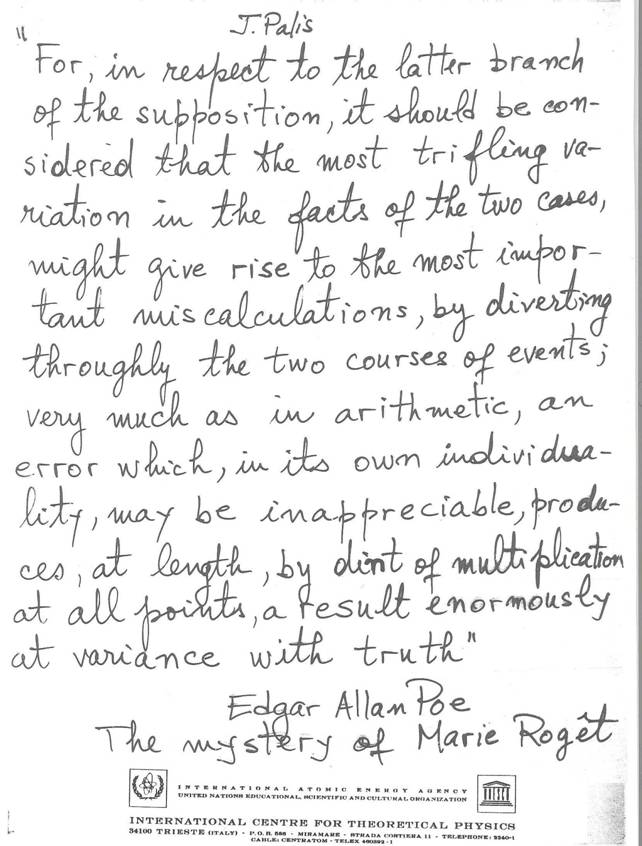 J. Palis
"For, in respect to the latter branch
of the supposition, it should be con-
sidered that the most trifling va-
riation in the facts of the two cases,
might give rise to the most impor-
tant miscalculations, by diverting
throughly the two courses of events;
very much as in arithmetic, an
error which, in its own individua-
lity, may be inappreciable, produ-
ces, at length, by dint of multiplication
at all points, a result enormously
at variance with truth"
Edgar Allan Poe
The mystery of Marie Rogêt
INTERNATIONAL ATOMIC ENERGY AGENCY
UNITED NATIONS EDUCATIONAL, SCIENTIFIC AND CULTURAL ORGANIZATION
INTERNATIONAL CENTRE FOR THEORETICAL PHYSICS
34100 TRIESTE (ITALY) - P.O.B. 586 - MIRAMARE - STRADA COSTIERA 11 - TELEPHONE: 2240-1
CABLE: CENTRATOM - TELEX 460392-I